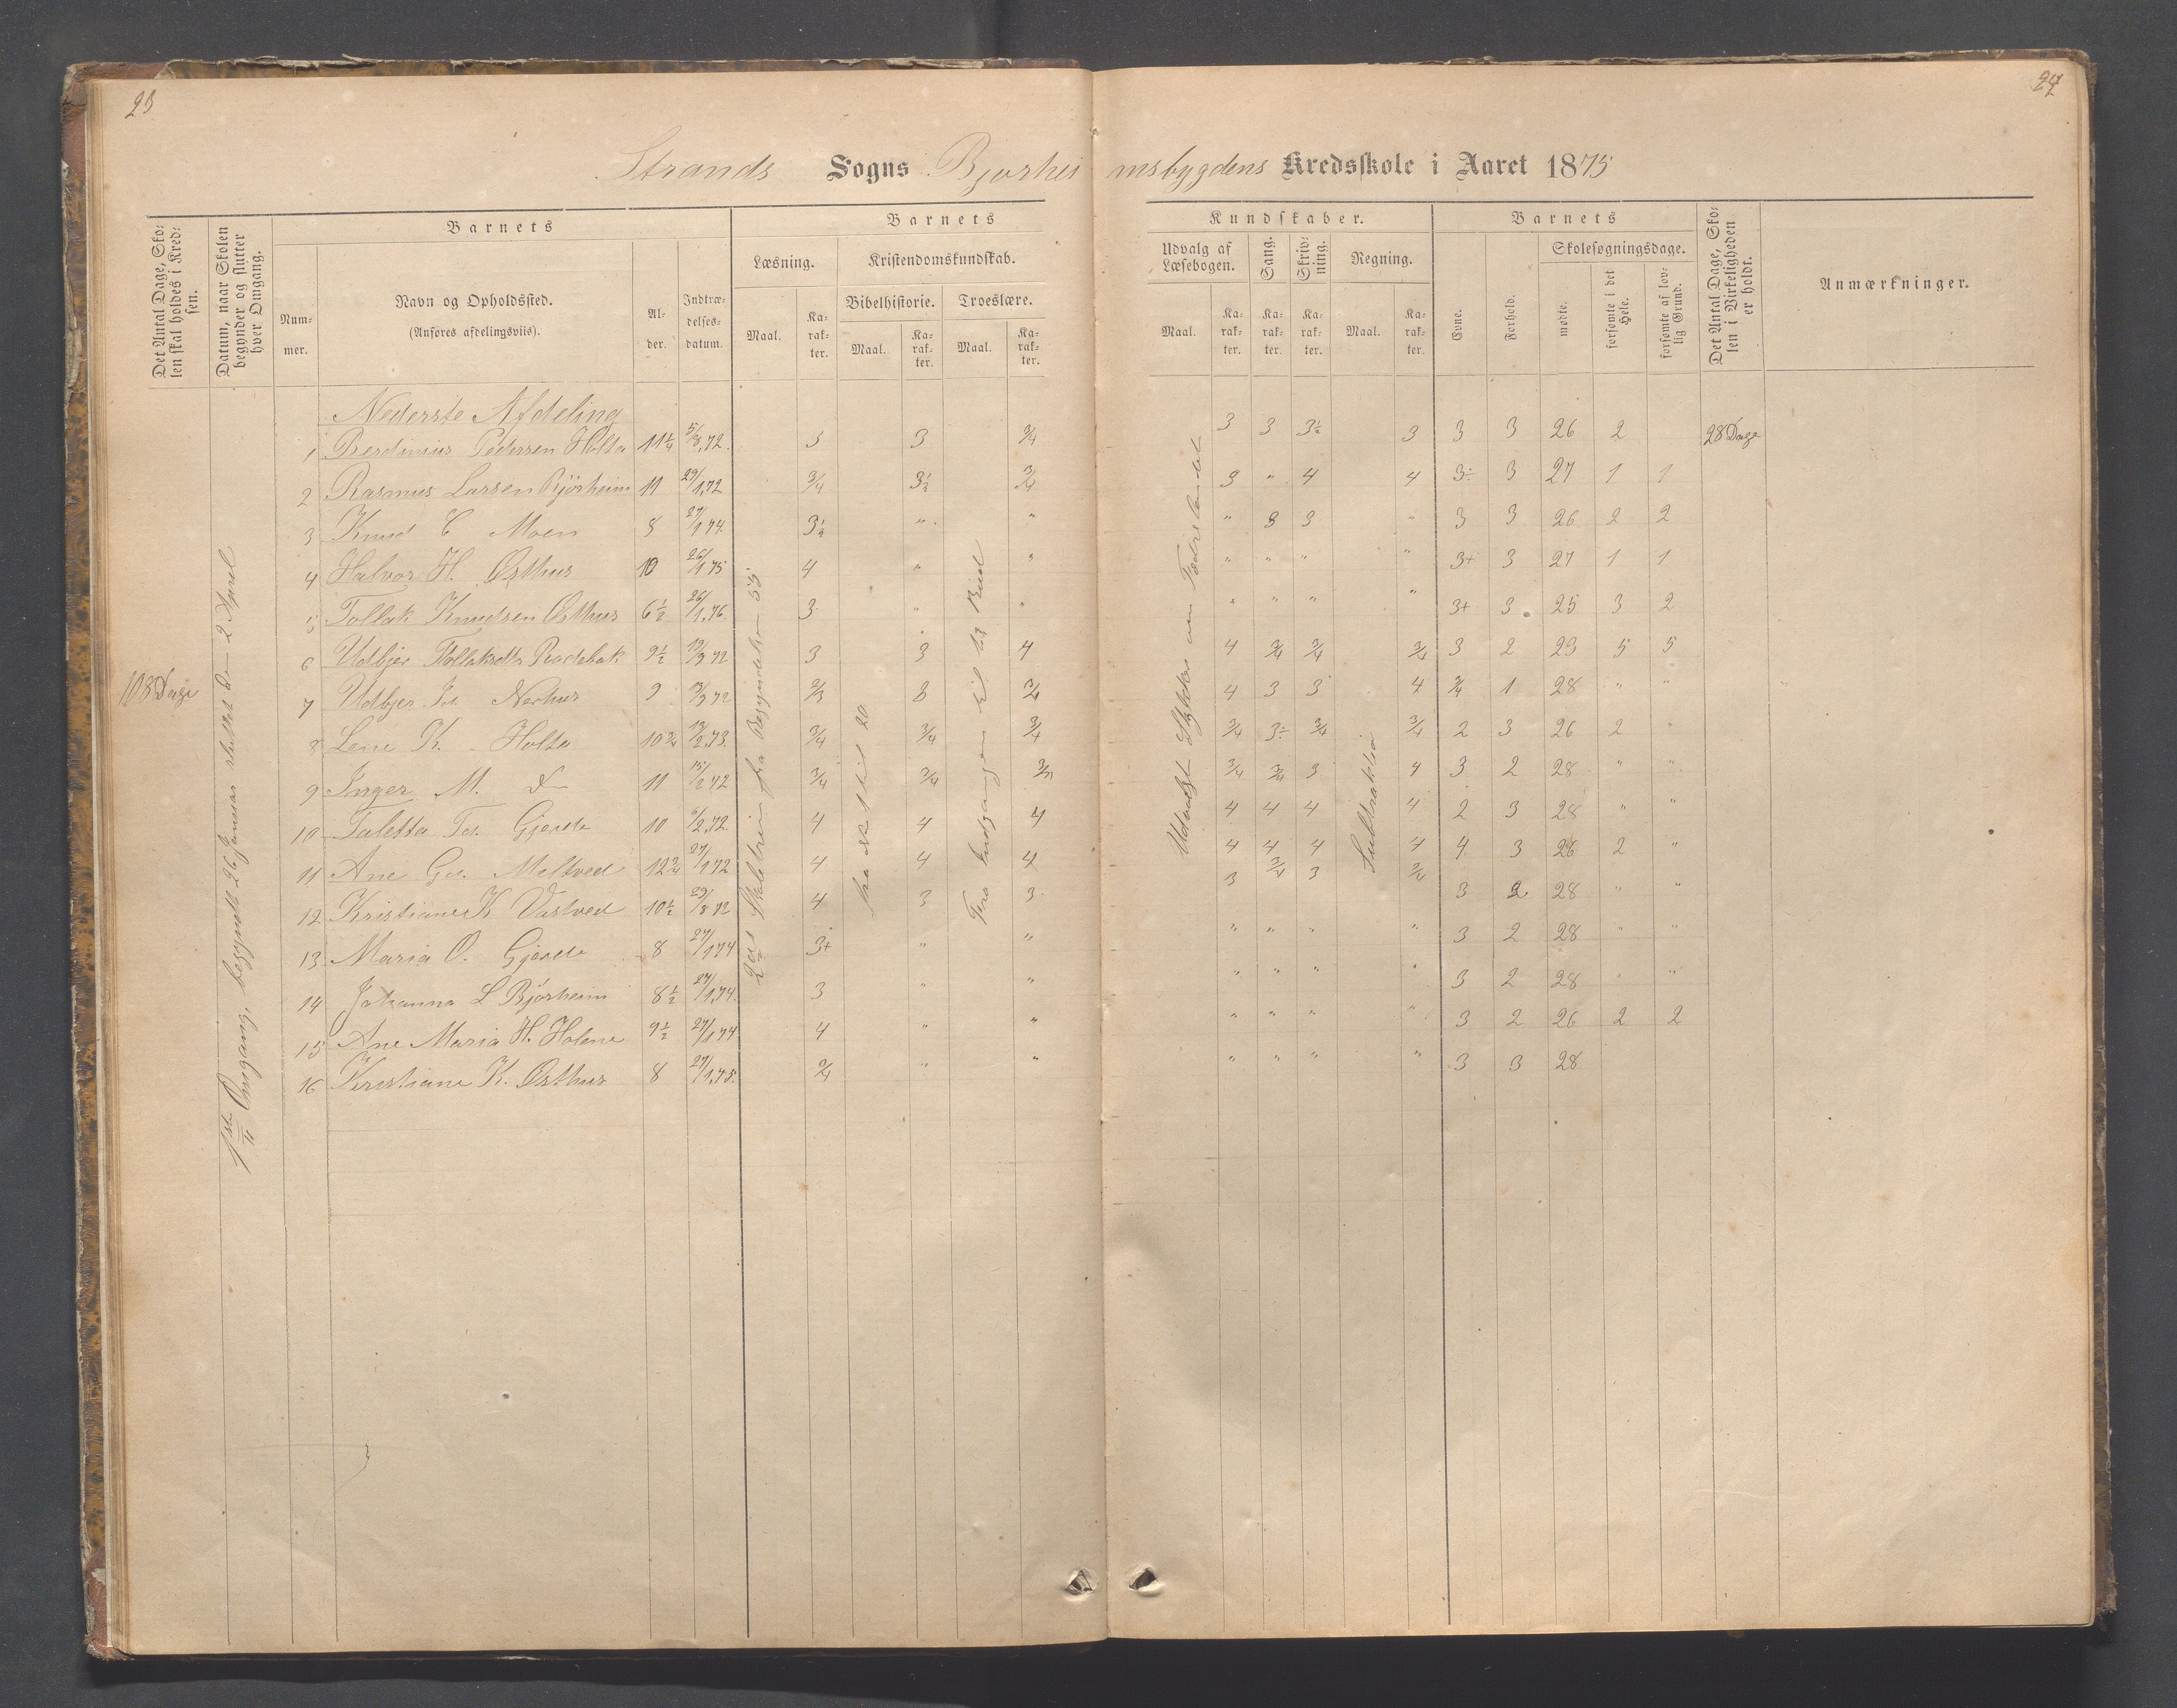 23
24
Strands Sogns Bjørheimsbygdens Kredsskole i Aaret 1875
Det Antal Dage, Skolen skal holdes i Kredsen.
Datum, naar Skolen begynder og slutter hver Omgang.
Barnets
Nummer.
Navn og Opholdssted.
(Anføres afdelingsviis).
Alder.
Indtrædelsesdatum.
Barnets
Læsning.
Kristendomskundskab.
Bibelhistorie.
Troeslære.
Maal.
Karakter.
Maal.
Karakter.
Maal.
Karakter.
Kundskaber.
Udvalg af Læsebogen.
Sang.
Skrivning.
Regning.
Maal.
Karakter.
Karakter.
Karakter.
Maal.
Karakter.
Barnets
Evne.
Forhold.
Skolesøgningsdage.
mødte.
forsømte i det Hele.
forsømte af lovlig Grund.
Det Antal Dage, Skolen i Virkeligheden er holdt.
Anmærkninger.
108 Dage
1ste Omgang, begyndt 26 Januar sluttet den 2 April
Fra Indgangen til
fra 1 til 20
Udvalgte Stykker om Fædrelandet
Subtraktion
Nederste Afdeling
1 Berdinius Pedersen Holta 11¼ 3 3 3/4 3 3 3½ 3 3 3 26 2 28 Dage
2 Rasmus Larsen Bjørheim 11 29/1,72 3/4 3½ 3/4 3 " 4 4 3÷ 3 27 1 1
3 Knud E Moen 8 27/1 74. 3½ " " " 3 3 " 3 3 26 2 2
4 Halvor H. Østhus 10 26/1 75 4 " " " " " " 3+ 3 27 1 1
5 Tollak Knudsen Østhus 6½ 26/1,76. 3 " " " " " " 3+ 3 25 3 2
6 Udbjør 9½ 3 3 4 4 3/4 3/4 3/4 3 2 23 5 5
7 Udbjør Js. Nerhus 9 2/3 3 3/4 4 3 3 4 3/4 1 28 " "
8 Lene K. Holta 10¾ 13/2,73. 3/4 3/4 3/4 3/4 3÷ 3/4 3/4 2 3 26 2 "
9 Inger M. do 11 15/2 72 3/4 3/4 3/4 3/4 3/4 3 4 3 2 28 " "
10 Taletta Ts. Gjerde 10 6/2,72. 4 4 4 4 4 4 4 2 3 28 " "
11 Ane Gs. Moltved 12¾ 27/1 72 4 4 4 4 4 4 4 4 3 26 2 "
12 Kristiane K Vastved 10½ 4 3 3 3 3/4 3 3/4 3 2 28 " "
13 Maria O. Gjerde 8 27/1 74 3+ " " " " " " 3 2 28 " "
14 Johanna L Bjørheim 8½ 27/1,74. 3 " " " " " " 3 2 28 " "
15 Ane Maria H. Holene 9½ 27/1 74 4 " " " " " " 3 2 26 2 2
16 Kristiane K. Østhus 8 27/1,75. 3/4 " " " " " " 3 3 28